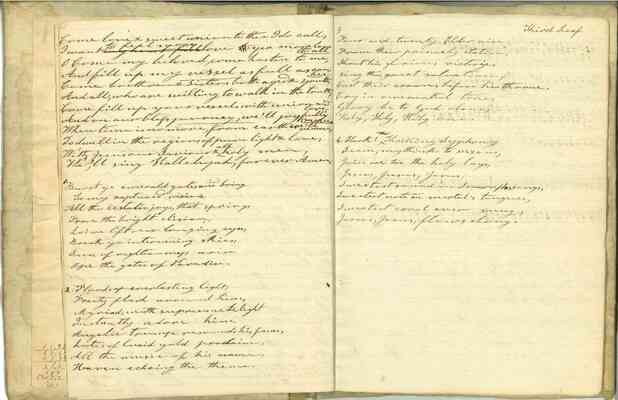 Come love & sweet union to thee I do call,
I want
love
O Come my beloved, come hasten to me,
And fill up my vessel as full as can be,
Come brothers & sisters both aged & youth,
And all, who are willing to walk in the truth,
Come fill up your vessel, with union and love,
And on our
journey, we'll joyfully
When time is no more, from earth
To dwell in the region of pure light & love,
With
union
holy men,
We'll sing Hallelujah, forever Amen
1 Burst ye emerald gates and bring
To my raptured vision
All the ecstatic joys that spring
Round the bright elysian,
Lo we lift our longing eyes,
Break ye intervening skies,
Sun of righteousness arise
Ope the gates of Paradise.
2 Floods of everlasting light,
Freely flash around him,
Myriads with supreme delight
Instantly adore him
Angelic trumps resound his fame,
Lutes of lucid gold proclaim,
All the music of his name,
Heaven echoing the theme.
3
Third Leap
Four and twenty Elders rise
From their princely station
Shout his glorious victories
Sing the great salvation,
Cast their crowns before his throne,
Cry in
tone
Glory be to God
Holy, Holy, Holy One.
4 Hark! The thrilling symphony
Seem, methinks to seize us,
Join we too the holy lays,
Jesus, Jesus, Jesus,
Sweetest sound in
songs,
Sweetest note on mortal's tongues,
Sweetest carol ever sung,
Jesus, Jesus, flow along.